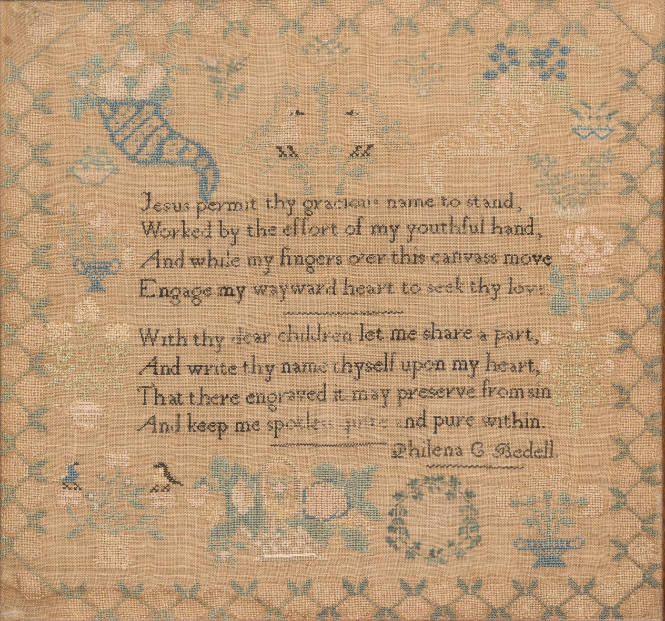 Jesus permit thy gracious name to stand,
Worked by the effort of my youthful hand,
And while my fingers o'er this canvass move
Engage my wayward heart to seek thy love
With thy dear children let me share a part,
And write thy name thyself upon my heart,
That there engraved it may preserve from sin
And keep me spotless and pure within.
Philena G Bedell